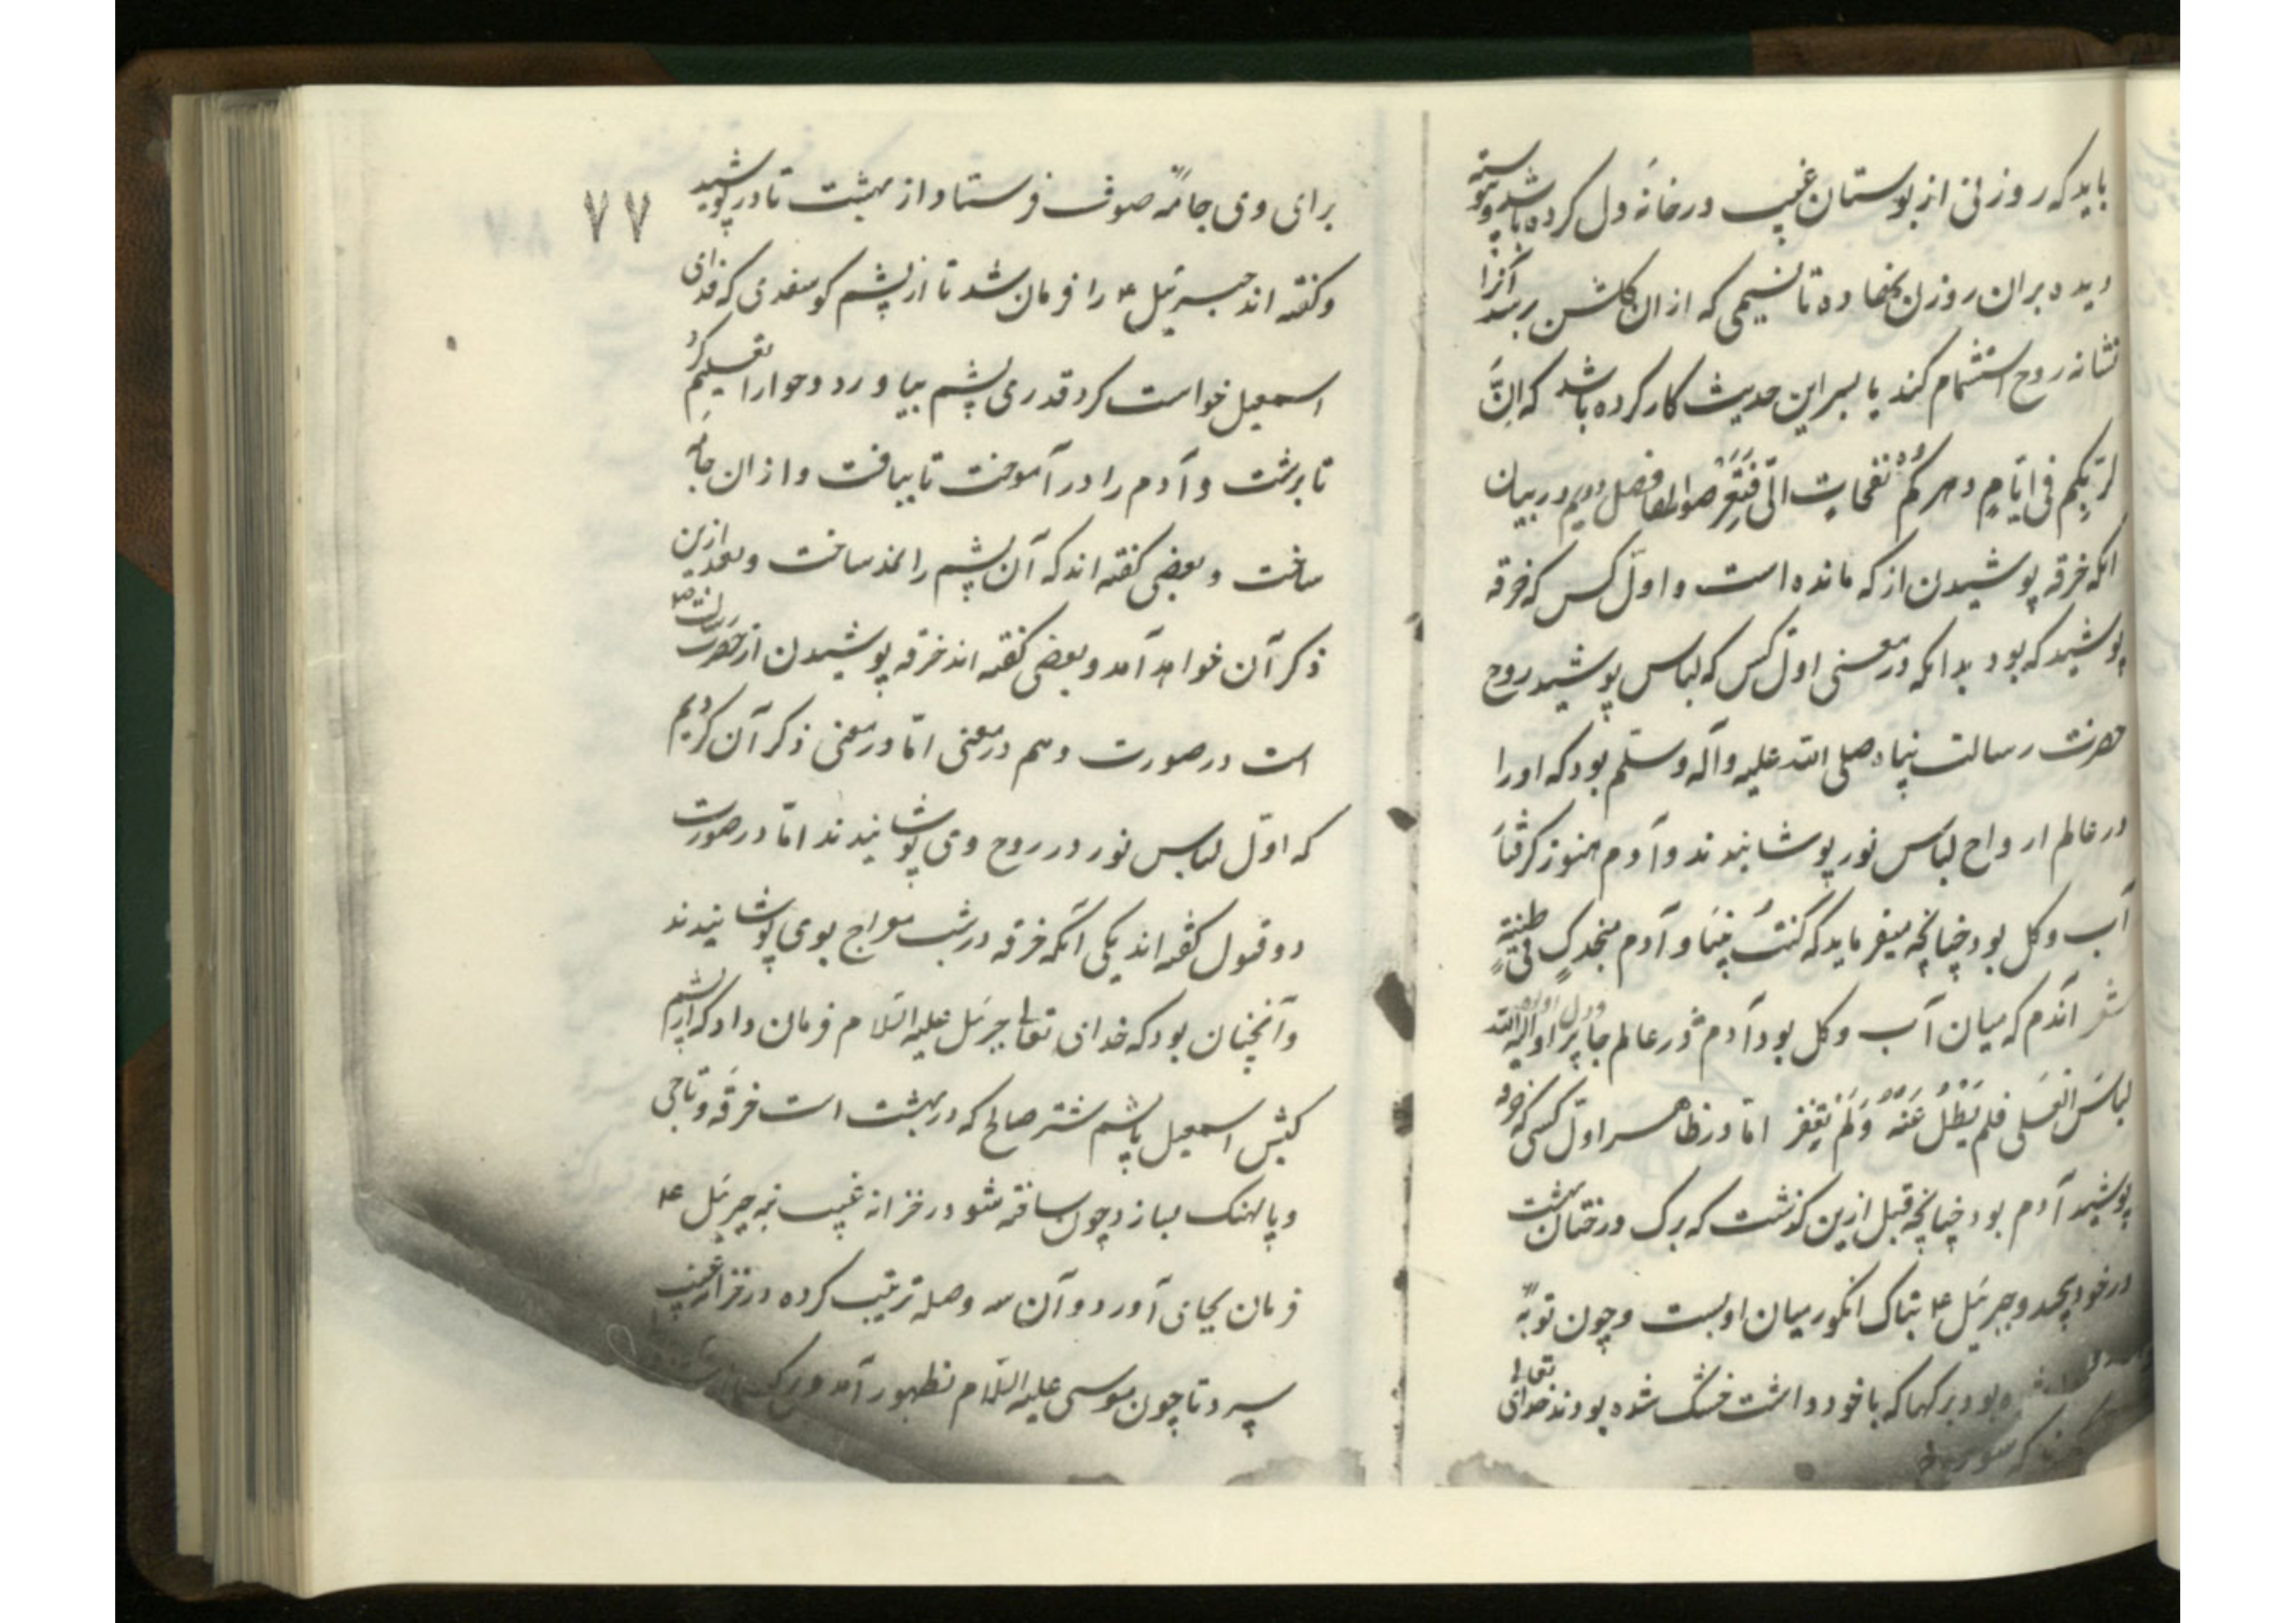 باید که روزنی از بوستان غیب در خانهٔ دل کرده باشد و پیوسته
دیده بران روزن نهاده تا نسیمی که از ان گلشن رسد آنرا
نشانه روح استشمام کند یا بسر این حدیث کار کرده باشد که اِنَّ
لربّکم فی ایّامِ دهرکم نفحاتٍ الّی فتعرّضوا لها فصل دویم در بیان
انکه خرقه پوشیدن از که مانده است و اوّل کس که خرقه
پوشید که بود بدانکه در معنی اوّل کس که لباس پوشید روح
حضرت رسالت پناه صلی الله علیه وآله وسلّم بود که او را
در عالم ارواح لباس نور پوشانیدند و آدم هنوز گرفتار
آب و کل بود چنانچه میفرماید که کنتُ نبیّا و آدم منجدل فی طینةٍ
شعر آندم که میان آب و کل بود آدم در عالم جا
لباسَ فلم یَطُلْ عَنْهُ وَلَمْ اما در ظاهر اوّل کسی که خرقه
پوشید آدم بود چنانچه قبل ازین کذشت که برک درختان بهشت
در خود پیچید و جبرئیل ع بتاک انکور میان او بست و چون توبهٔ
بود برکها که با خود داشت خشک شده بودند خدای تعالی
برای وی جامهٔ صوف فرستاد از بهشت تا در پوشید
۷۷
وکفته اند جبرئیل ع را فرمان شد تا از پشم کوسفندی که فدای
اسمعیل خواست کرد قدری پشم بیاورد و حوا را تعلیم کرد
تا برشت و آدم را در آموخت تا ببافت و از ان جامهٔ
ساخت و بعضی کفته اند که آن پشم را نمد ساخت و بعد ازین
ذکر آن خواهد آمد و بعضی کفته اند خرقه پوشیدن از حضرت رسالت ص
است در صورت و هم در معنی امّا در معنی ذکر آن کردیم
که اوّل لباس نور در روح وی پوشانیدند امّا در صورت
دو قول کفته اند یکی آنکه خرقه در شب معراج بوی پوشانیدند
و آنچنان بود که خدای تعالی جبرئیل علیه السّلام فرمان داد که از پشم
کبش اسمعیل یا پشم شتر صالح که در بهشت است خرقه و تاجی
و پالهنک بساز و چون ساخته شود در خزانه غیب نه جبرئیل ع
فرمان بجای آورد و آن سه وصله ترتیب کرده در خزانه غیب
سپرد تا چون موسی علیه السّلام بظهور آمد و